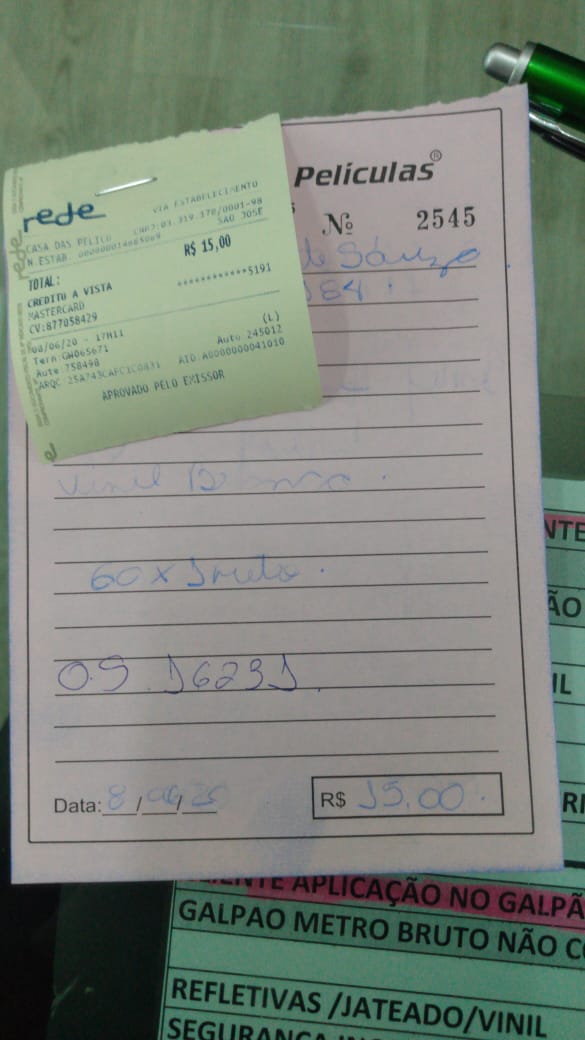 rede
VIA ESTABELECIMENTO
CNPJ:03.319.178/0001-98
CASA DAS PELICU SAO JOSE
N.ESTAB. 000000014665069
R$ 15,00
TOTAL:
CREDITO A VISTA
************5191
MASTERCARD
CV:877058429
08/06/20 - 17H11 (L)
Term:GW065671 Auto 245012
Aute 758498
ARQC:25A743CAFC1C0831 AID:A0000000041010
APROVADO PELO EMISSOR
Películas®
Nº 2545
de Souza
084
Vinil Branco.
60 x 1 metro.
OS 16231
Data: 8/06/
R$ 15,00
NTE
ÃO
IL
CLIENTE APLICAÇÃO NO GALPÃ
GALPAO METRO BRUTO NÃO CO
REFLETIVAS /JATEADO/VINIL
SEGURANÇA